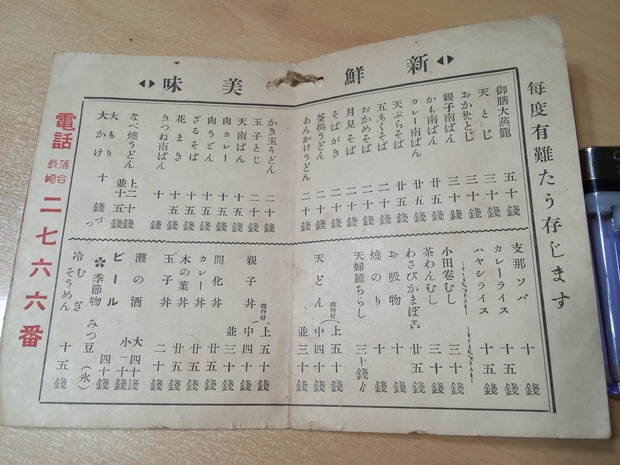 毎度有難たう存じます
新鮮
美味
御膳大蒸籠 五十銭
天とじ 三十銭
おかめとじ 三十銭
親子南ばん 三十銭
かも南ばん 三十銭
カレー南ばん 廿五銭
天ぷらそば 廿五銭
五もくそば 二十銭
おかめそば 二十銭
月見そば 二十銭
そばがき 二十銭
釜揚うどん 二十銭
あんかけうどん 二十銭
かき玉うどん 二十銭
玉子とじ 二十銭
天南ばん 十五銭
肉カレー 十五銭
肉うどん 十五銭
ざるそば 十五銭
花まき 十五銭
きつね南ばん 十五銭
なべ焼うどん 上二十銭 並十五銭
大もり
大かけ 十銭づつ
支那ソバ 十銭
カレーライス 十五銭
ハヤシライス 十五銭
小田巻むし 三十銭
茶わんむし 三十銭
わさびかまぼこ 二十銭
お吸物 二十銭
焼のり 十銭
天婦羅ちらし 三十銭より
天どん 吸物付 上五十銭 中四十銭 並三十銭
親子丼 吸物付 上五十銭 中四十銭 並三十銭
開化丼 三十銭
カレー丼 廿五銭
木の葉丼 廿五銭
玉子丼 二十銭
灘の酒 四十銭
ビール 大四十銭 小二十銭
季節物 みつ豆(氷)
冷むぎ
そうめん 十五銭
電話 落合長崎 二七六六番